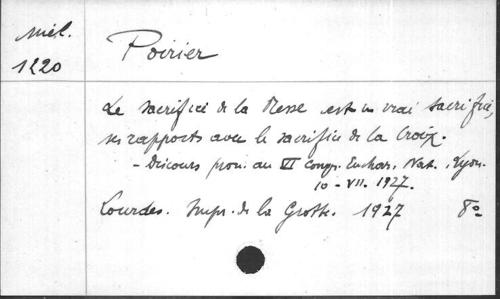 Miél.
1220
Poirier
Le sacrifice de la Messe est un vrai sacrifice,
ses rapports avec le sacrifice de la Croix.
- Discours pron. au VI Congr. Euchar. Nat. Lyon.
10 - VII. 1927.
Lourdes. Impr. de la Grotte. 1927 8°